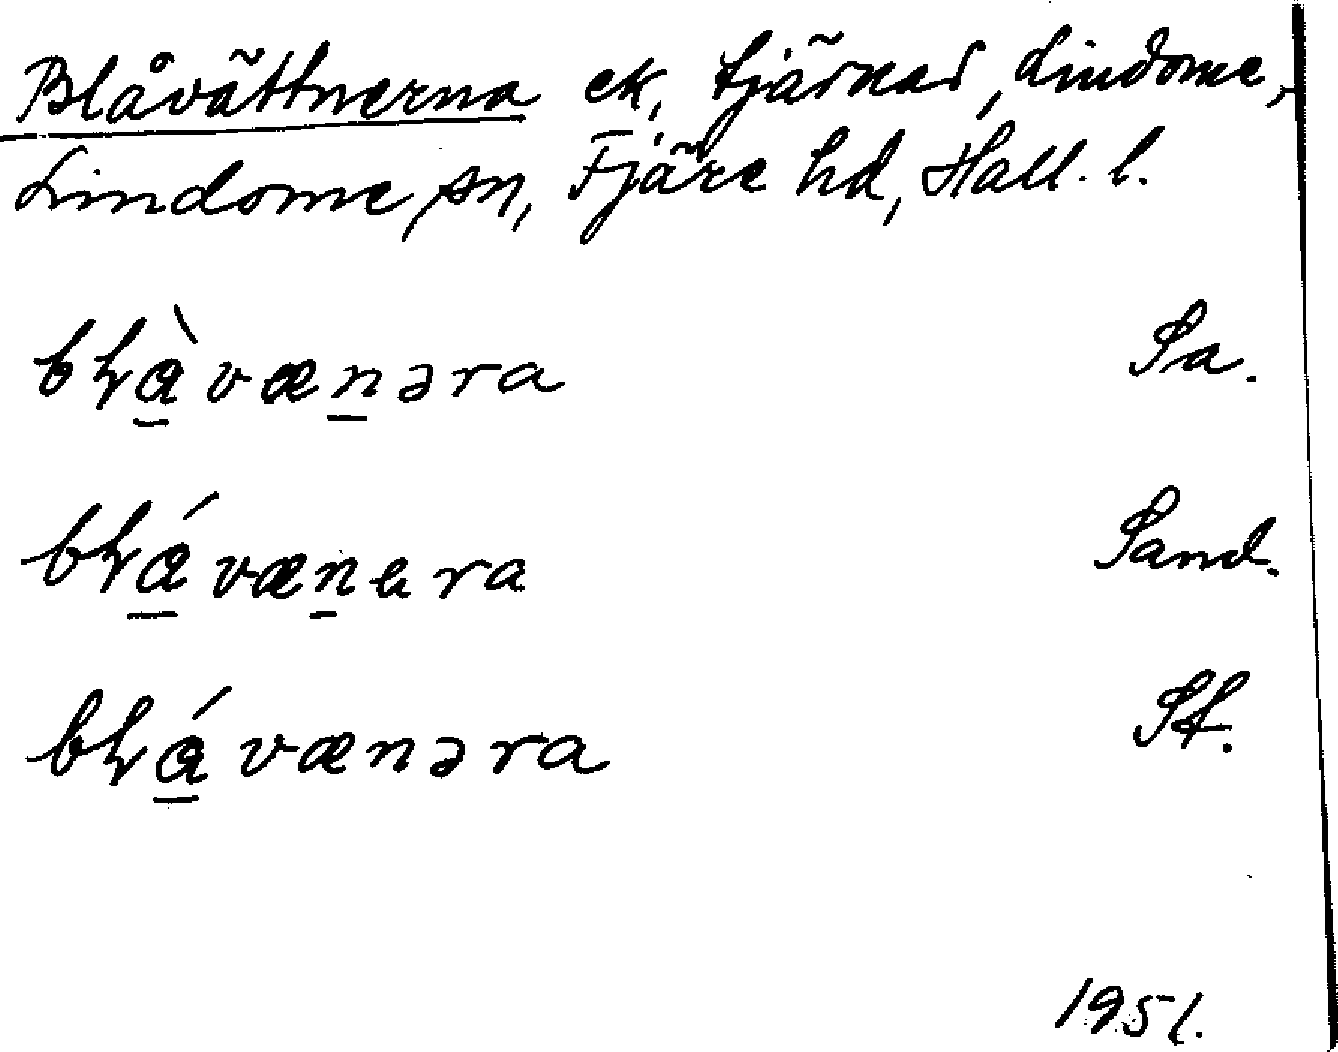 Blåvättnerna ek, tjärnar, Lindome,
Lindome sn, Fjäre hd, Hall. l.
bɫà̲væn̲əra Sa.
bɫá̲væn̲era Sand.
bɫá̲vænəra Sf.
1951.